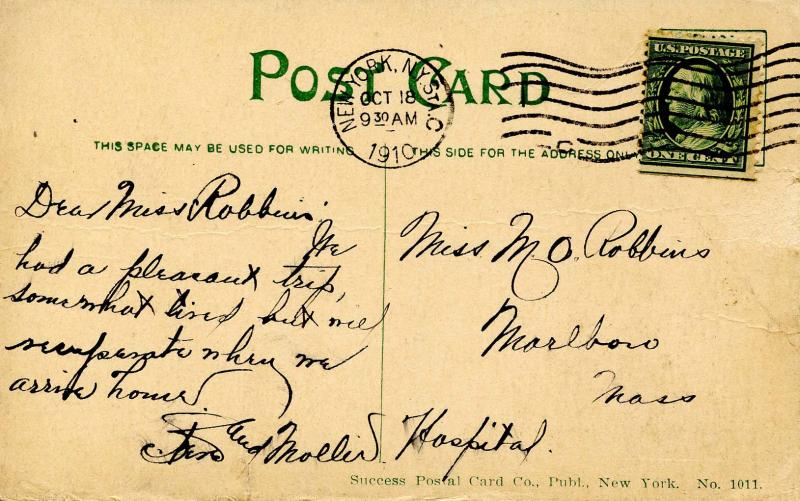 POST CARD
NEW YORK, N.Y. STA. C
OCT 18
9 30 AM
1910
U.S. POSTAGE
ONE CENT
THIS SPACE MAY BE USED FOR WRITING
THIS SIDE FOR THE ADDRESS ONLY
Dear Miss Robbins:
We
had a pleasant trip,
somewhat tired but will
recuperate when we
arrive home
and
Miss M. O. Robbins
Marlboro
Mass
Hospital.
Success Postal Card Co., Publ., New York. No. 1011.